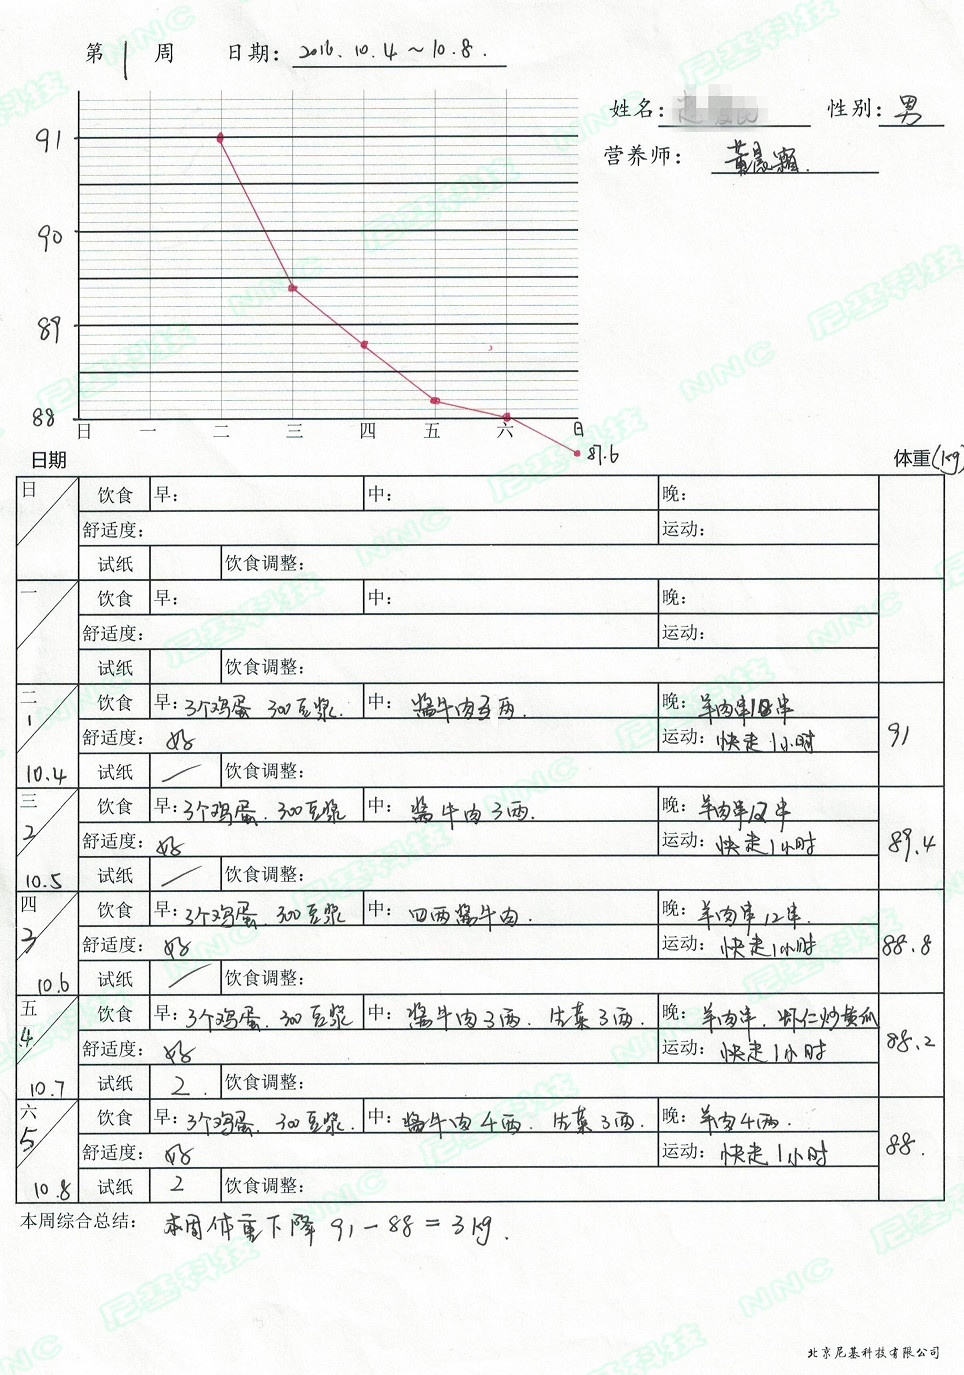 第 1 周 日期: 2016.10.4~10.8.
姓名: 性别: 男
营养师:
91
90
89
88
日 一 二 三 四 五 六 日
87.6
日期 体重(kg)
日 饮食 早: 中: 晚:
舒适度: 运动:
试纸 饮食调整:
一 饮食 早: 中: 晚:
舒适度: 运动:
试纸 饮食调整:
二 饮食 早: 3个鸡蛋 300豆浆. 中: 酱牛肉 两. 晚: 羊肉串 串
1 舒适度: 好 运动: 快走1小时 91
10.4 试纸 / 饮食调整:
三 饮食 早: 3个鸡蛋. 300豆浆 中: 酱牛肉3两. 晚: 羊肉串12串
2 舒适度: 好 运动: 快走1小时 89.4
10.5 试纸 / 饮食调整:
四 饮食 早: 3个鸡蛋. 300豆浆 中: 四两酱牛肉. 晚: 羊肉串12串.
3 舒适度: 好 运动: 快走1小时 88.8
10.6 试纸 / 饮食调整:
五 饮食 早: 3个鸡蛋. 300豆浆 中: 酱牛肉3两. 生菜3两. 晚: 羊肉串. 虾仁炒黄瓜
4 舒适度: 好 运动: 快走1小时 88.2
10.7 试纸 2. 饮食调整:
六 饮食 早: 3个鸡蛋. 300豆浆. 中: 酱牛肉4两. 生菜3两. 晚: 羊肉4两.
5 舒适度: 好 运动: 快走1小时 88.
10.8 试纸 2 饮食调整:
本周综合总结: 本周体重下降 91-88=3kg.
北京尼基科技有限公司
尼基科技 NNC